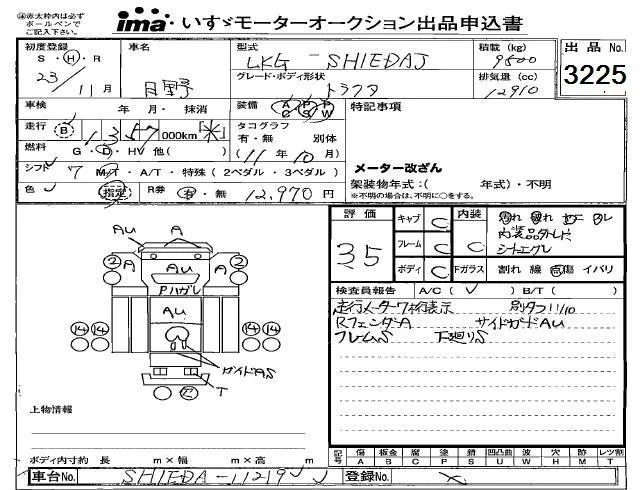 ㊟赤太枠内は必ず
ボールペンで
ご記入下さい。
ima いすゞモーターオークション出品申込書
初度登録 車名 型式 LKG - SHIEDAJ 積載 (kg) 9800 出品 No.
S・H・R グレード・ボディ形状 3225
23 11月 日野 トラクタ 排気量 (cc) 12910
車検 年 月・抹消 装備 A P P C S W 特記事項
走行 B 1 3 5 7 000km 米 タコグラフ
有・無 別体
燃料 G・D・HV 他( ) (11年10月) メーター改ざん
シフト 7 M/T・A/T・特殊(2ペダル・3ペダル) 架装物年式:( 年式)・不明
※不明の場合は、不明に○をする。
色 指定 R券 有・無 12,970 円
評価 キャブ C 内装 C
35 フレーム C 内装品外レ
ボディ C Fガラス 割れ 線 傷 イバリ
検査員報告 A/C(レ) B/T( )
走行メーター7桁表示 別タコ11/10
RフェンダA サイドガードAU
フレームS 下廻りS
AU A
2 A AU A 2
Pハガレ
AU
14 14 14 14
ガイドAS
T
上物情報
ボディ内寸約 長 m×幅 m×高 m
記号 傷 板金 腐 塗 錆 凹凸曲 波 穴 損 レツ割
A B C P S U W H M T
車台No. SHIEDA-11219 登録No.